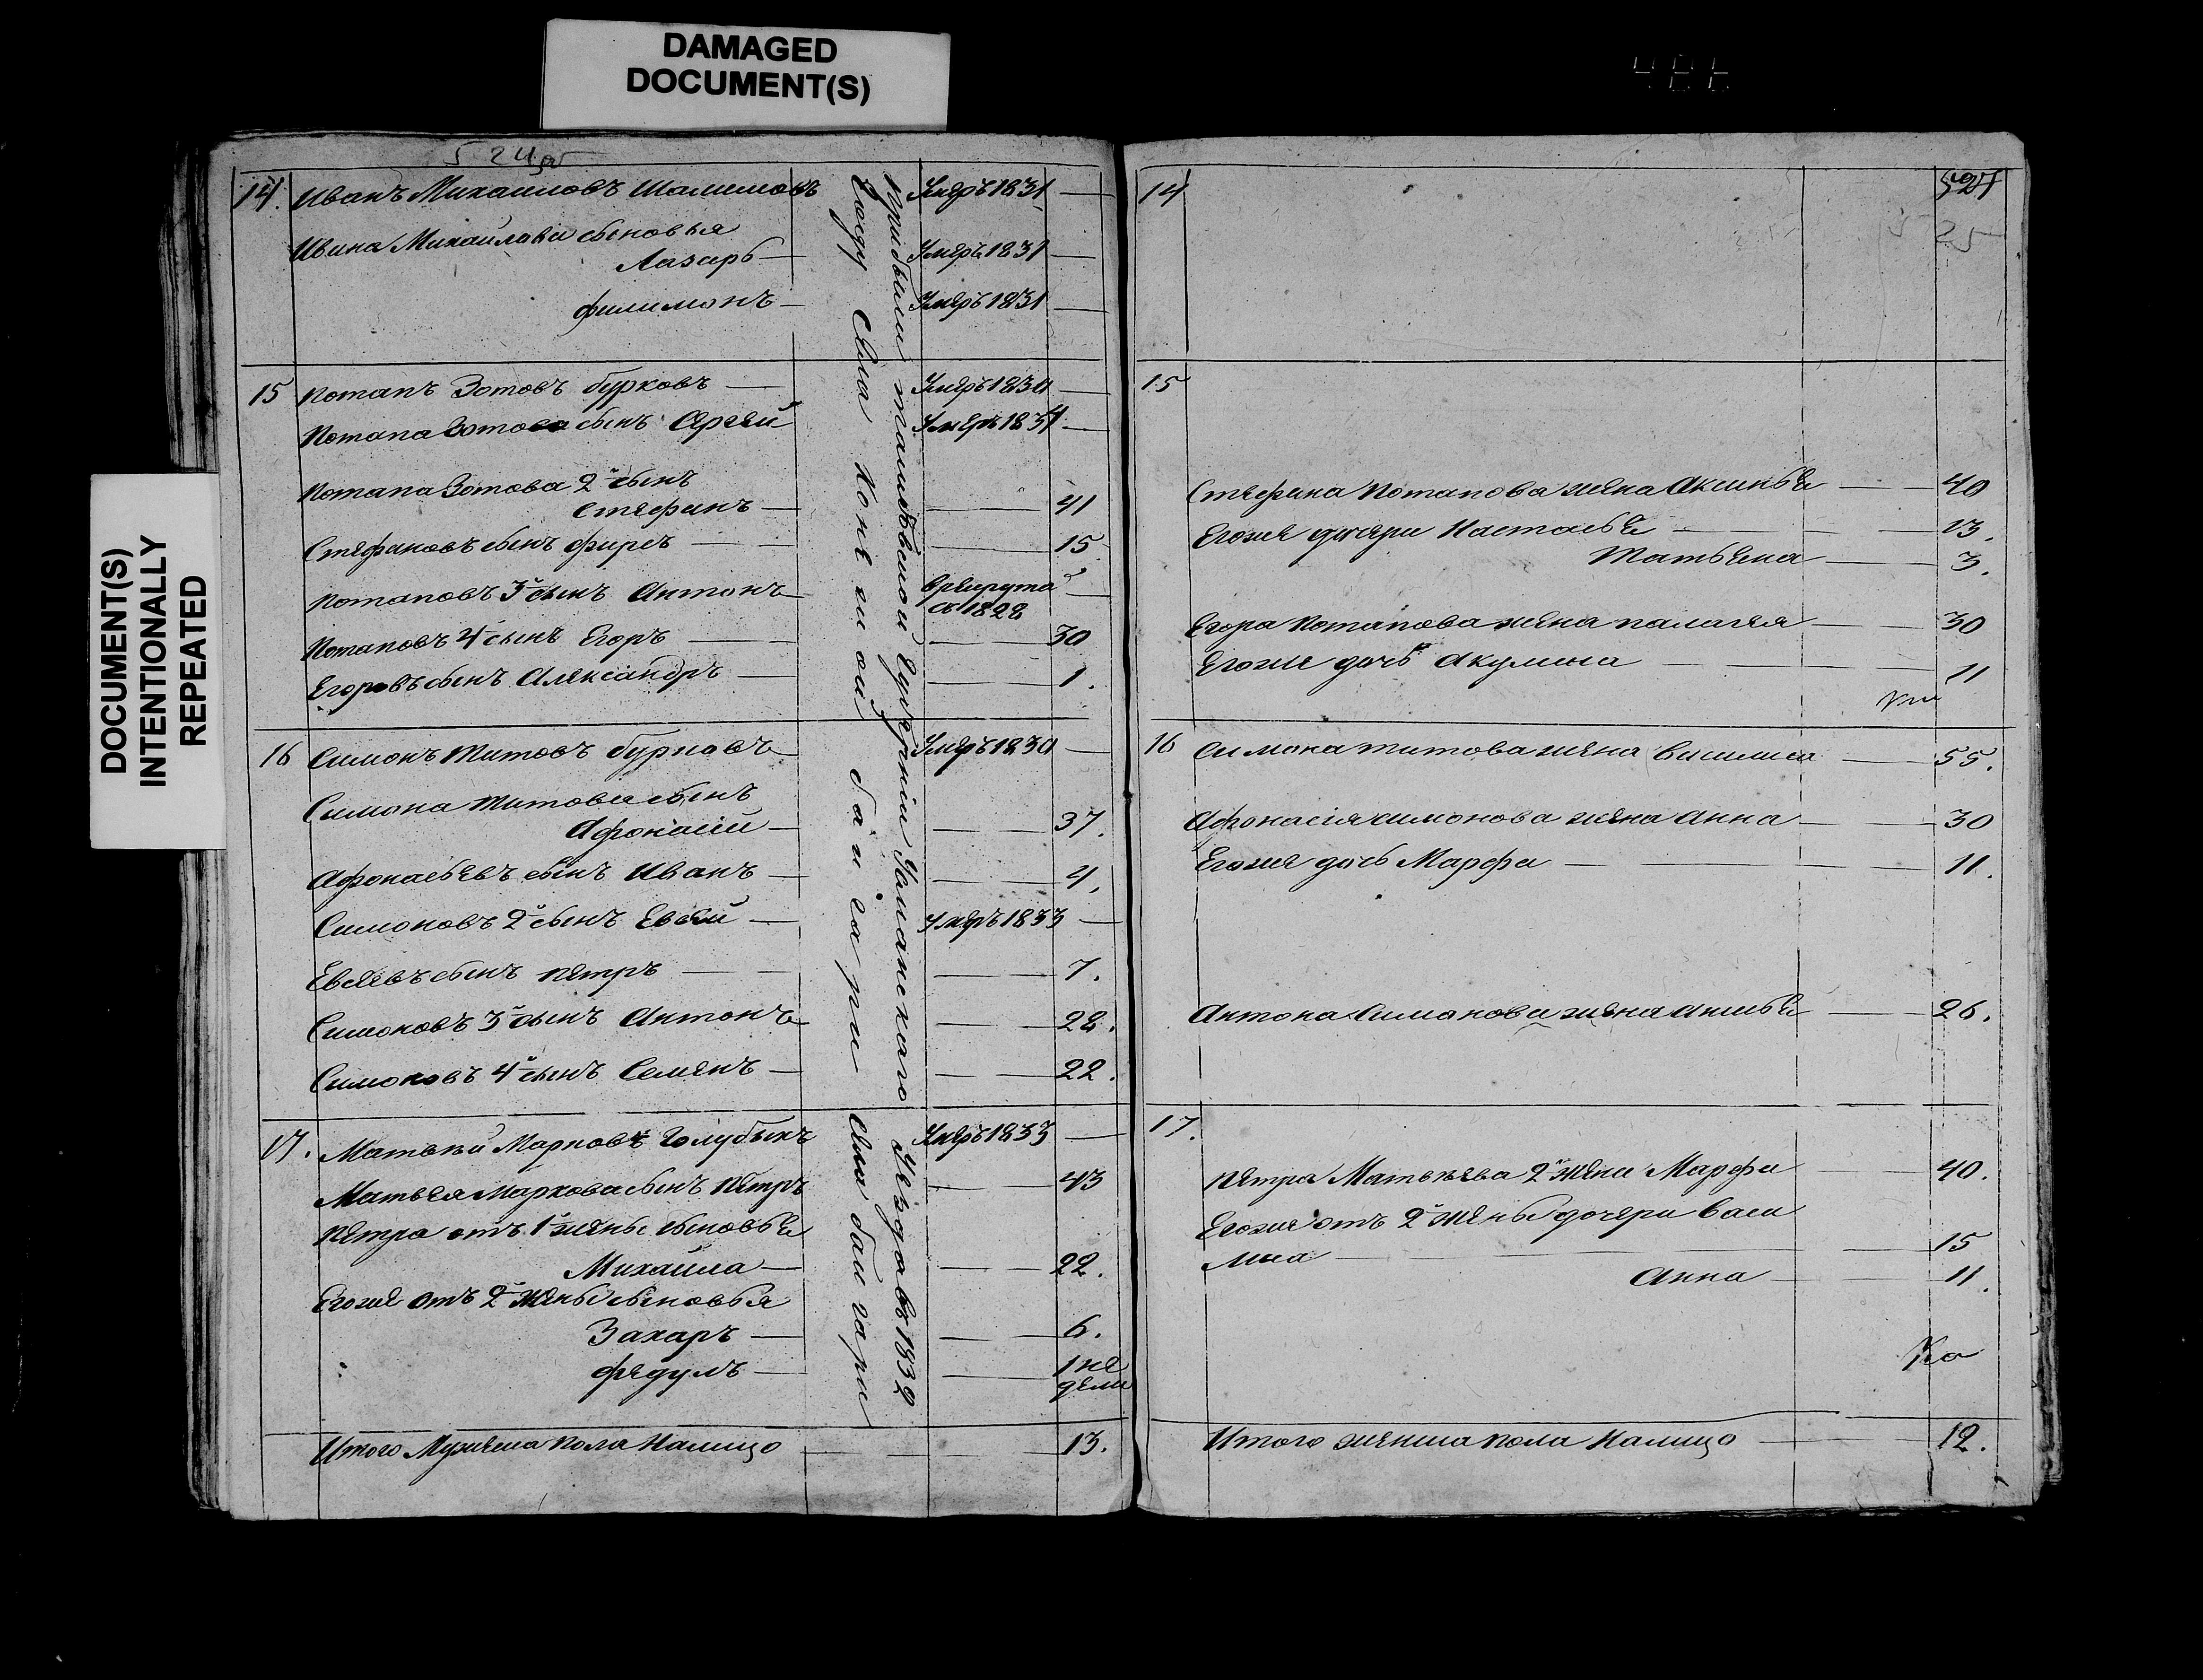 DAMAGED
DOCUMENT(S)
DOCUMENTS(S)
INTENTIONALLY
REPEATED
524
14. Иванъ Михаиловъ Шалимовъ Умеръ 1831
Ивана Михаилова сыновья
Лазарь Умеръ 1831
Филимонъ Умеръ 1831
15 Потапъ Зотовъ Бурковъ Умеръ 1830
Потапа Зотова сынъ Сергей Умеръ 1831
Потапа Зотова 2й сынъ
Стефанъ 41
Стефановъ сынъ Фирсъ 15
Потаповъ 3й сынъ Антонъ в рекрута
съ 1828
Потаповъ 4й сынъ Егоръ 30
Егоровъ сынъ Александръ 1.
16 Симонъ Титовъ Бурковъ Умеръ 1830
Симона Титова сынъ
Афонасий 37.
Афонасьевъ сынъ Иванъ 4.
Симоновъ 2й сынъ Евсей Умеръ 1833
Евсеевъ сынъ Петръ 7.
Симоновъ 3й сынъ Антонъ 28.
Симоновъ 4й сынъ Семенъ 22.
17. Матвей Марковъ Голубынъ Умеръ 1833
Матвея Маркова сынъ Петръ 43
Петра отъ 1й жены сыновья
Михаила 22.
Егоже отъ 2й жены сыновья
Захаръ 6.
Федулъ 1 не
дели
Итого Мужеска пола налицо 13.
Прибыли Губернии Уезда въ 1832
Году Села
14
525
15
Стефана Потапова жена Аксинья 40
Егоже дочери Настасья 13.
Татьяна 3.
Егора Потапова жена Палагея 30
Егоже дочь Акулина 11
16 Симона Титова жена Василиса 55.
Афонасия Симонова жена Анна 30
Егоже дочь Марфа 11.
Антона Симонова жена 26.
17.
Петра Матвеева 2й жена Марфа 40.
Егоже отъ 2й жены дочери Васи
лиса 15
Анна 11.
Итого женска пола налицо 12.